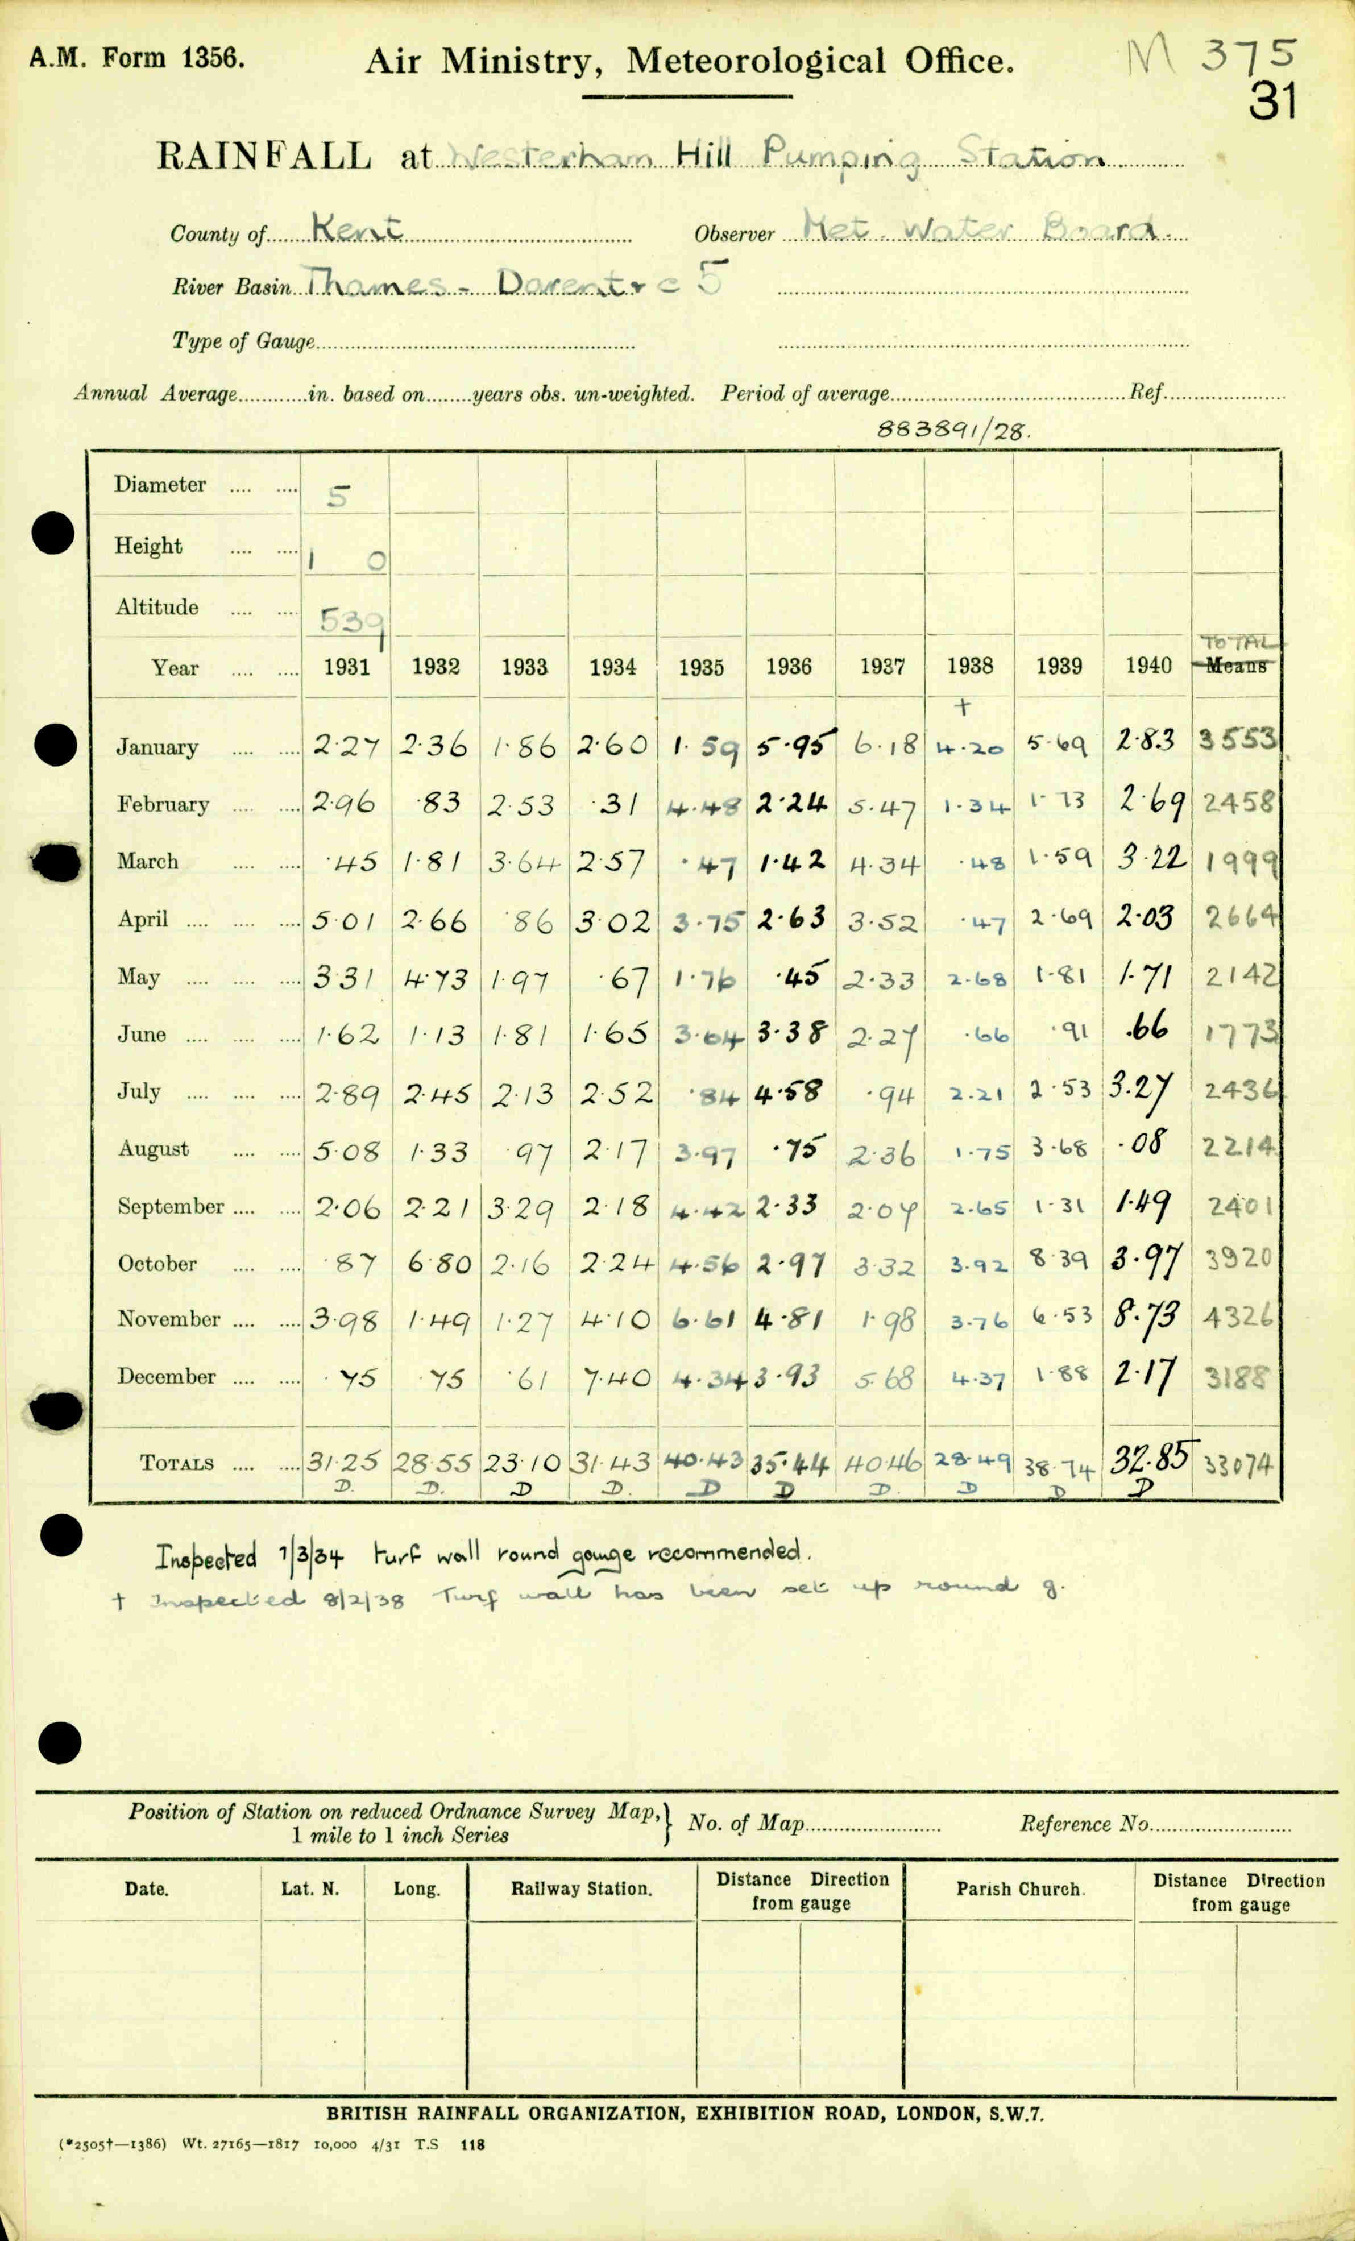 A.M. Form 1356.
Air Ministry, Meteorological Office.
M 375
31
RAINFALL at Westerham Hill Pumping Station
County of Kent Observer Met. Water Board.
River Basin Thames - Darent & c 5
Type of Gauge
Annual Average in. based on years obs. un-weighted. Period of average Ref.
883891/28.
Diameter 5
Height 1 0
Altitude 539
TOTAL
Year 1931 1932 1933 1934 1935 1936 1937 1938 1939 1940 Means
+
January 2.27 2.36 1.86 2.60 1.59 5.95 6.18 4.20 5.69 2.83 3553
February 2.96 .83 2.53 .31 4.48 2.24 5.47 1.34 1.73 2.69 2458
March .45 1.81 3.64 2.57 .47 1.42 4.34 .48 1.59 3.22 1999
April 5.01 2.66 .86 3.02 3.75 2.63 3.52 .47 2.69 2.03 2664
May 3.31 4.73 1.97 .67 1.76 .45 2.33 2.68 1.81 1.71 2142
June 1.62 1.13 1.81 1.65 3.64 3.38 2.27 .66 .91 .66 1773
July 2.89 2.45 2.13 2.52 .84 4.58 .94 2.21 2.53 3.27 2436
August 5.08 1.33 .97 2.17 3.97 .75 2.36 1.75 3.68 .08 2214
September 2.06 2.21 3.29 2.18 4.42 2.33 2.07 2.65 1.31 1.49 2401
October .87 6.80 2.16 2.24 4.56 2.97 3.32 3.92 8.39 3.97 3920
November 3.98 1.49 1.27 4.10 6.61 4.81 1.98 3.76 6.53 8.73 4326
December .75 .75 .61 7.40 4.34 3.93 5.68 4.37 1.88 2.17 3188
TOTALS 31.25 28.55 23.10 31.43 40.43 35.44 40.46 28.49 38.74 32.85 33074
D. D. D D. D D D. D D D
Inspected 7/3/34 turf wall round gauge recommended.
† Inspected 8/2/38 Turf wall has been set up round g.
Position of Station on reduced Ordnance Survey Map,} No. of Map Reference No.
1 mile to 1 inch Series
Date. Lat. N. Long. Railway Station. Distance Direction from gauge Parish Church. Distance Direction from gauge
BRITISH RAINFALL ORGANIZATION, EXHIBITION ROAD, LONDON, S.W.7.
(*2505†—1386) Wt. 27165—1817 10,000 4/31 T.S 118